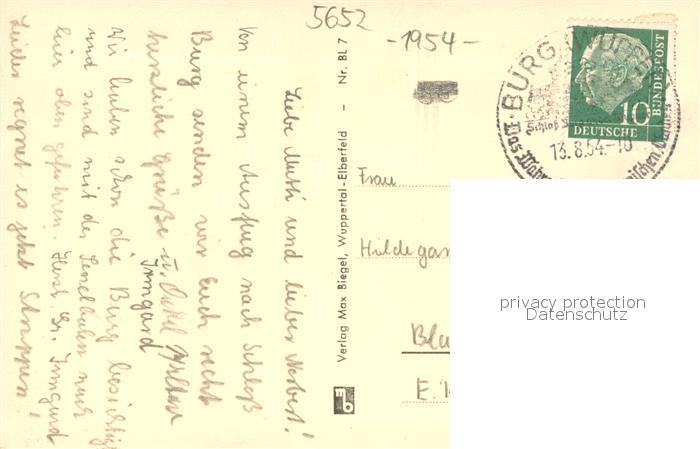 5652
-1954-
Liebe Mutti und lieber Norbert!
Von einem Ausflug nach Schloß
Burg senden wir Euch recht
herzliche Grüße
u. Onkel
Irmgard
Wir haben schon die Burg besichtigt
und sind mit der Seselbahn nach
hier oben gefahren. Herzl. Gr. Irmgard
Leider regnet es jetzt Strappen!
Verlag Max Biegel, Wuppertal-Elberfeld – Nr. BL 7
Frau
Hildegar
Bla
E.
BURG (WUPPER
Schloß
Das Wahr
ischen
13.8.54.-10
10
DEUTSCHE
BUNDESPOST
privacy protection
Datenschutz